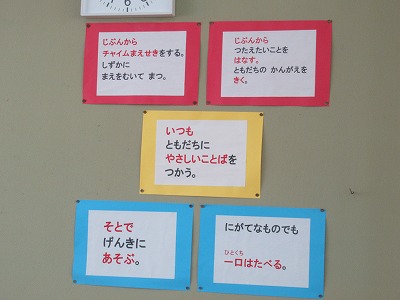 じぶんから
チャイムまえせきをする。
しずかに
まえをむいて まつ。
じぶんから
つたえたいことを
はなす。
ともだちの かんがえを
きく。
いつも
ともだちに
やさしいことばを
つかう。
そとで
げんきに
あそぶ。
にがてなものでも
ひとくち
一口はたべる。